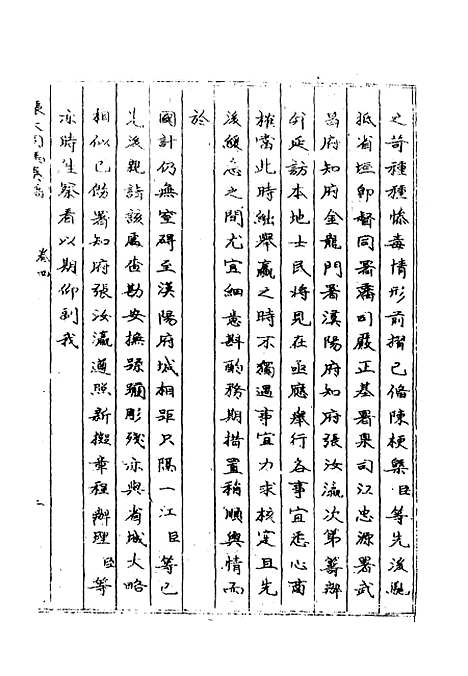 之苛種種慘毒情形前摺已備陳梗槩臣等先後馳
抵省垣卽督同署藩司嚴正基署臬司江忠源署武
昌府知府金龍門署漢陽府知府張汝瀛次第籌辦
延訪本地士民將見在亟應舉行各事宜悉心商
榷當此時絀舉嬴之時不獨遇事宜力求核定且先
後緩急之間尤宜細意斟酌務期措置稍順輿情而
於
國計仍無窒碍至漢陽府城相距只隔一江臣等已
先後親詣該處查勘安撫彫殘亦與省城大略
相似已飭署知府張汝瀛遵照新擬章程辦理臣等
亦時生察看以期仰副我
卷四